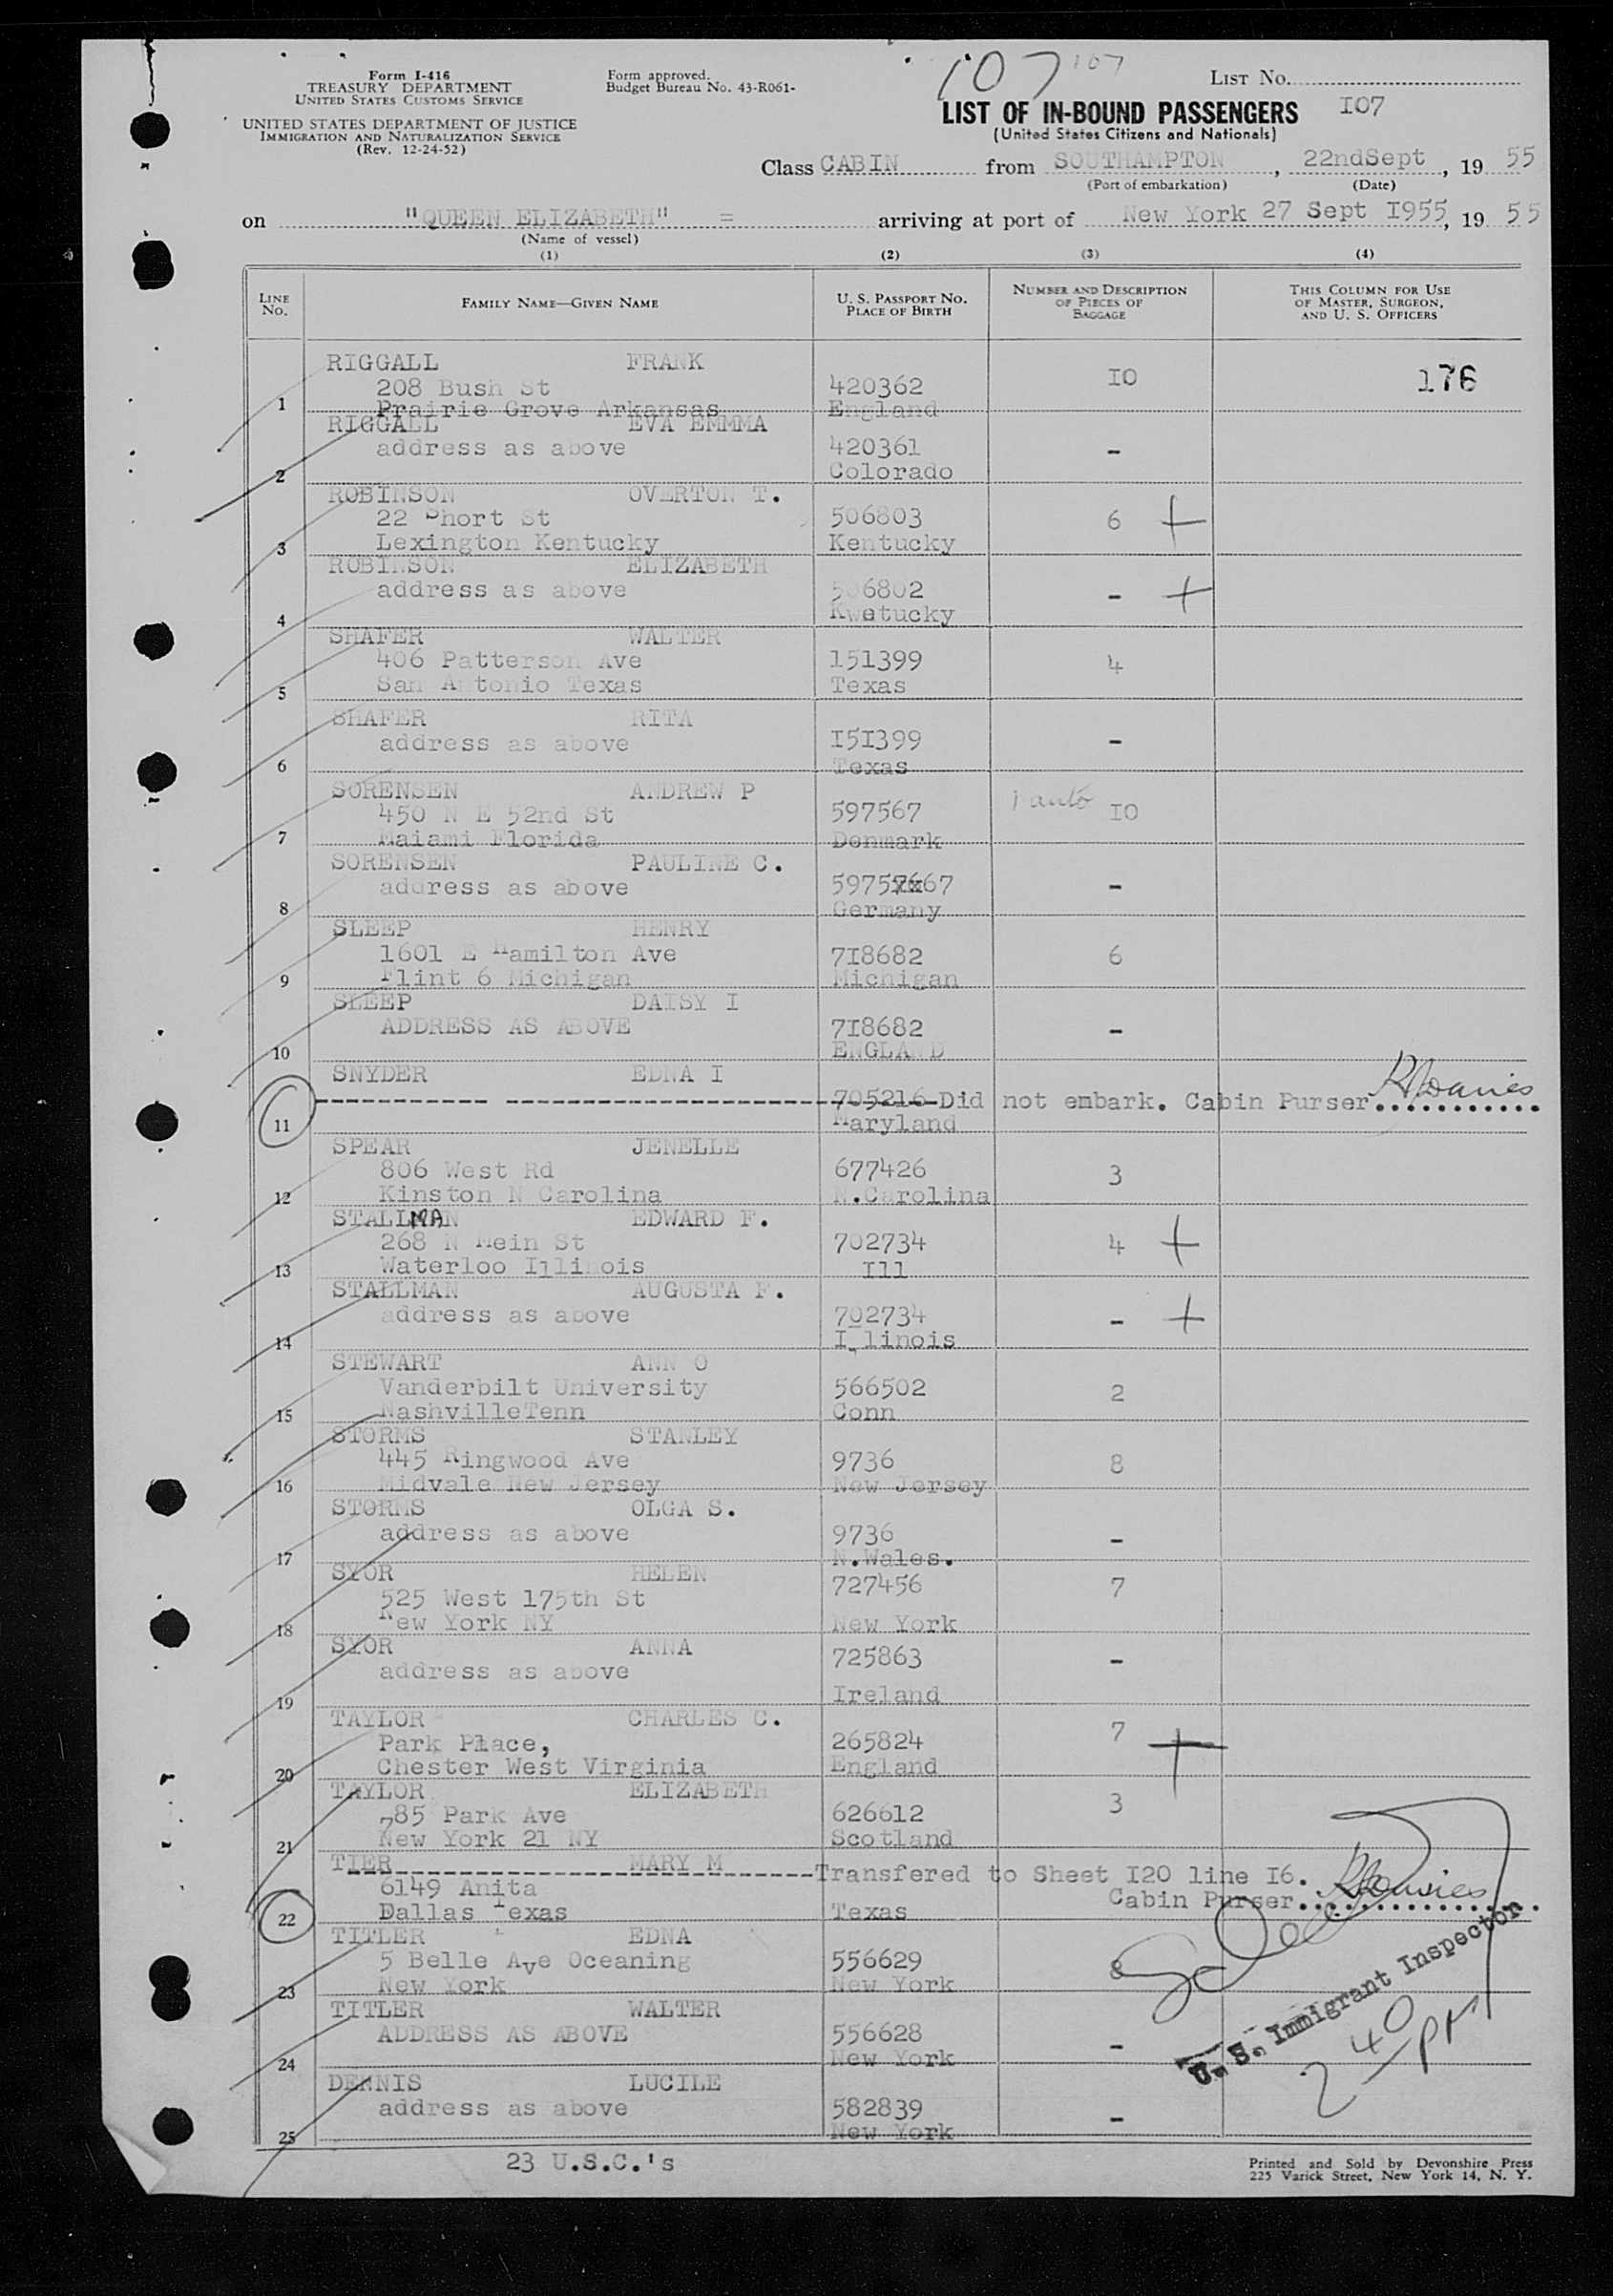 Form I-416
TREASURY DEPARTMENT
UNITED STATES CUSTOMS SERVICE
UNITED STATES DEPARTMENT OF JUSTICE
IMMIGRATION AND NATURALIZATION SERVICE
(Rev. 12-24-52)
Form approved.
Budget Bureau No. 43-R061-
107 107
LIST No.
LIST OF IN-BOUND PASSENGERS I07
(United States Citizens and Nationals)
Class CABIN from SOUTHAMPTON, 22ndSept, 19 55
(Port of embarkation) (Date)
on "QUEEN ELIZABETH" = arriving at port of New York 27 Sept I955, 19 55
(Name of vessel)
(1) (2) (3) (4)
LINE No. FAMILY NAME—GIVEN NAME U. S. PASSPORT No. PLACE OF BIRTH NUMBER AND DESCRIPTION OF PIECES OF BAGGAGE THIS COLUMN FOR USE OF MASTER, SURGEON, AND U. S. OFFICERS
RIGGALL FRANK
208 Bush St 420362 I0 176
1 Prairie Grove Arkansas England
RIGGALL EVA EMMMA
address as above 420361 -
2 Colorado
ROBINSON OVERTON T.
22 Short St 506803 6 +
3 Lexington Kentucky Kentucky
ROBINSON ELIZABETH
address as above 506802 - +
4 Kwetucky
SHAFER WALTER
406 Patterson Ave 151399 4
5 San Antonio Texas Texas
SHAFER RITA
address as above I5I399 -
6 Texas
SORENSEN ANDREW P
450 N E 52nd St 597567 1 auto I0
7 Maiami Florida Denmark
SORENSEN PAULINE C.
address as above 5975xx67 -
8 Germany
SLEEP HENRY
1601 E Hamilton Ave 7I8682 6
9 Flint 6 Michigan Michigan
SLEEP DAISY I
ADDRESS AS ABOVE 7I8682 -
10 ENGLAND
SNYDER EDNA I
705216 Did not embark. Cabin Purser
11 Maryland
SPEAR JENELLE
806 West Rd 677426 3
12 Kinston N Carolina N.Carolina
STALLMAN EDWARD F.
268 N Mein St 702734 4 +
13 Waterloo Illinois Ill
STALLMAN AUGUSTA F.
address as above 702734 - +
14 Illinois
STEWART ANN O
Vanderbilt University 566502 2
15 NashvilleTenn Conn
STORMS STANLEY
445 Ringwood Ave 9736 8
16 Midvale New Jersey New Jersey
STORMS OLGA S.
address as above 9736 -
17 N.Wales.
SYOR HELEN
525 West 175th St 727456 7
18 New York NY New York
SYOR ANNA
address as above 725863 -
19 Ireland
TAYLOR CHARLES C.
Park Place, 265824 7 +
20 Chester West Virginia England
TAYLOR ELIZABETH
785 Park Ave 626612 3
21 New York 21 NY Scotland
TIER MARY M Transfered to Sheet I20 line I6.
6149 Anita Cabin Purser
22 Dallas Texas Texas
TITLER EDNA
5 Belle Ave Oceaning 556629 8
23 New York New York
TITLER WALTER
ADDRESS AS ABOVE 556628 -
24 New York
DENNIS LUCILE
address as above 582839 -
25 New York
U. S. Immigrant Inspector
2 40 PM
23 U.S.C.'s
Printed and Sold by Devonshire Press
225 Varick Street, New York 14, N. Y.